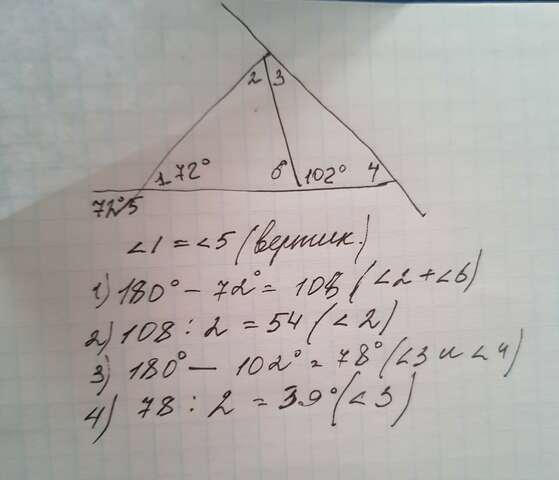 2 3
1 72° 6 102° 4
72° 5
∠1 = ∠5 (вертик.)
1) 180° - 72° = 108 (∠2 + ∠6)
2) 108 : 2 = 54 (∠2)
3) 180° - 102° = 78° (∠3 и ∠4)
4) 78 : 2 = 39° (∠3)